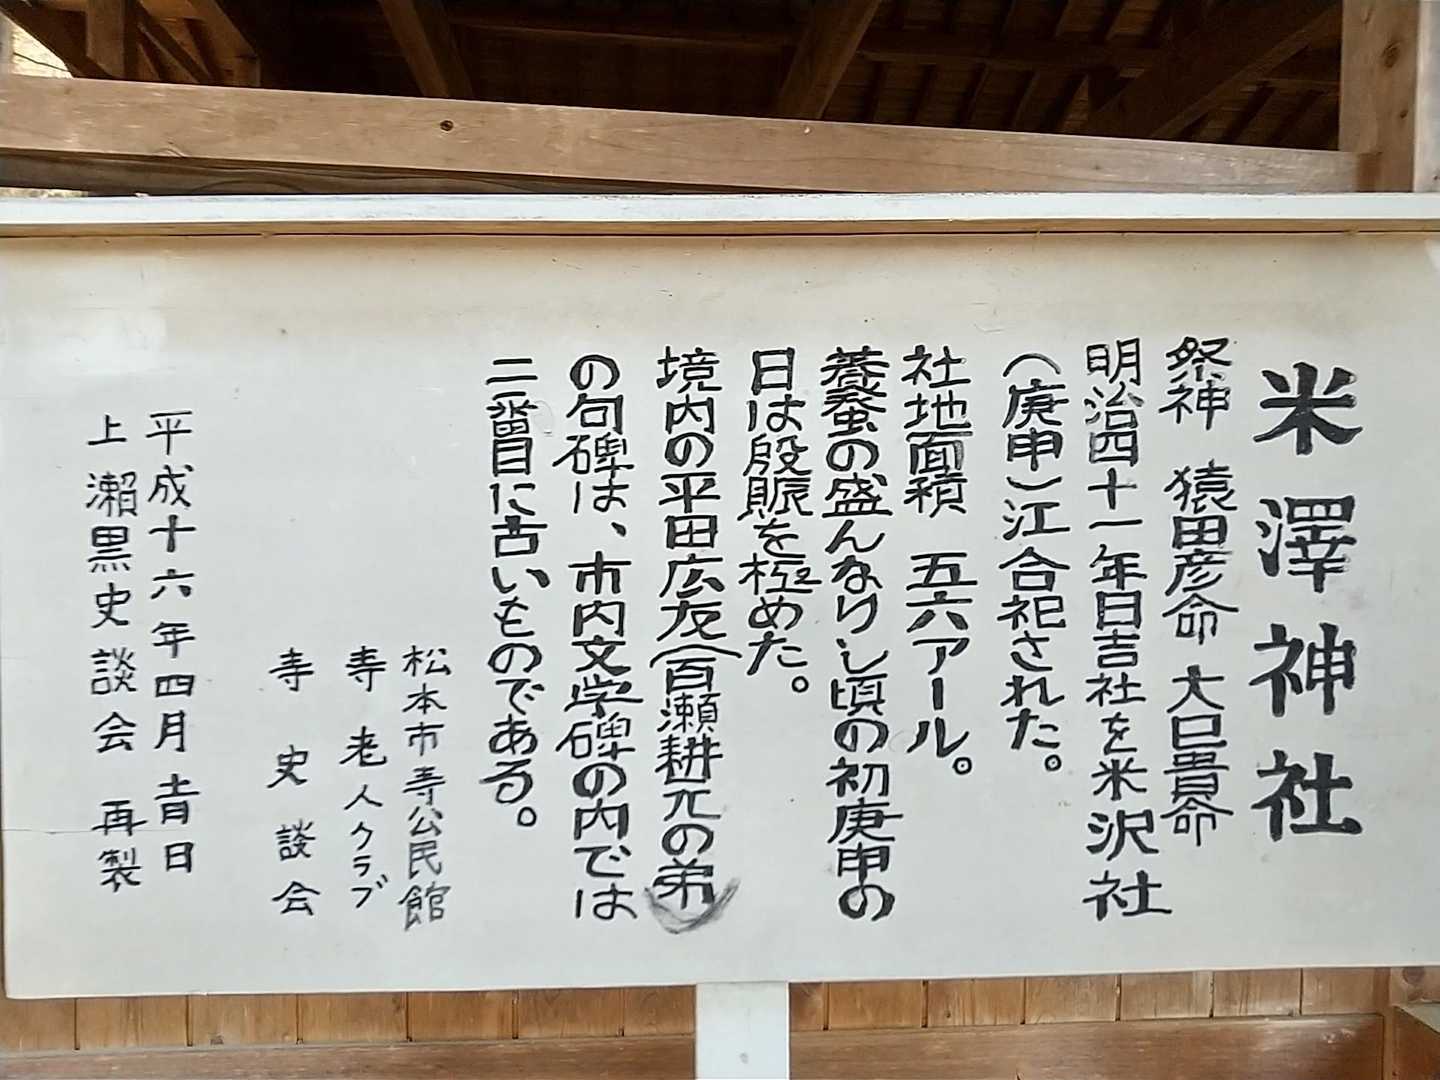 米澤神社
祭神 猿田彦命 大巳貴命
明治四十一年日吉社を米沢社
(庚申)江合祀された。
社地面積 五六アール。
養蚕の盛んなりし頃の初庚申の
日は殷賑を極めた。
境内の平田広友(百瀬耕元の弟)
の句碑は、市内文学碑の内では
二番目に古いものである。
松本市寿公民館
寿老人クラブ
寿史談会
平成十六年四月吉日
上瀬黒史談会 再製